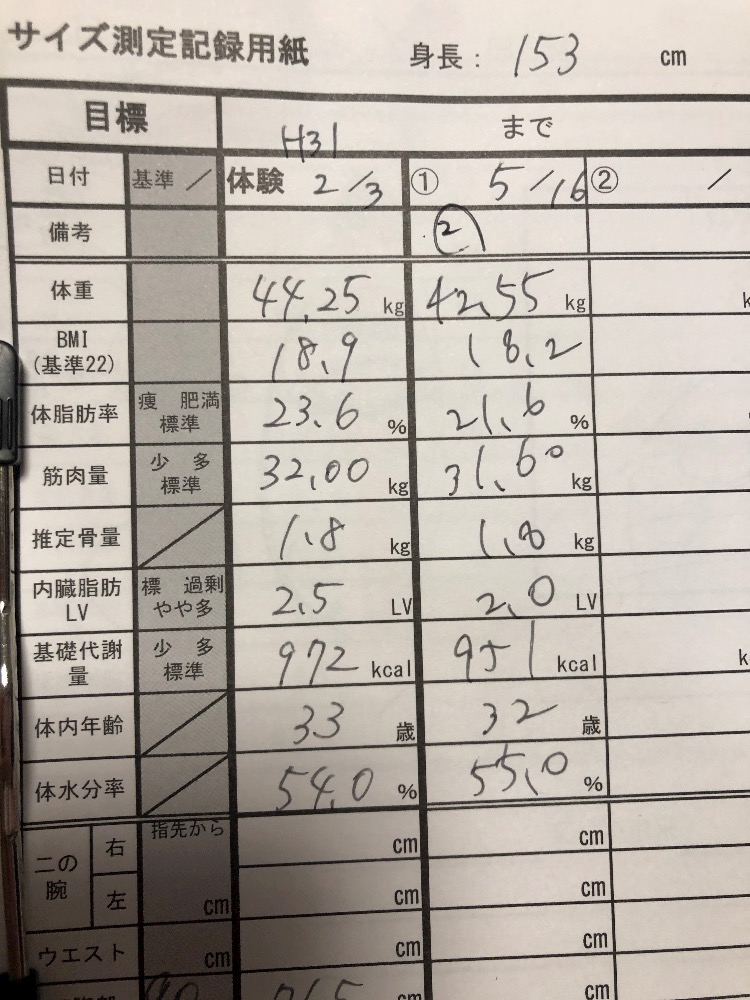 サイズ測定記録用紙 身長： 153 cm
目標 まで
H31
日付 基準 ／ 体験 2/3 ① 5/16 ② ／
備考 ②
体重 44.25 kg 42.55 kg
BMI
(基準22) 18.9 18.2
体脂肪率 痩 肥満
標準 23.6 % 21.6 %
筋肉量 少 多
標準 32.00 kg 31.60 kg
推定骨量 1.8 kg 1.8 kg
内臓脂肪
LV 標 過剰
やや多 2.5 LV 2.0 LV
基礎代謝
量 少 多
標準 972 kcal 951 kcal
体内年齢 33 歳 32 歳
体水分率 54.0 % 55.0 %
二の
腕 右 指先から cm cm
左 cm cm cm
ウエスト cm cm cm
cm cm